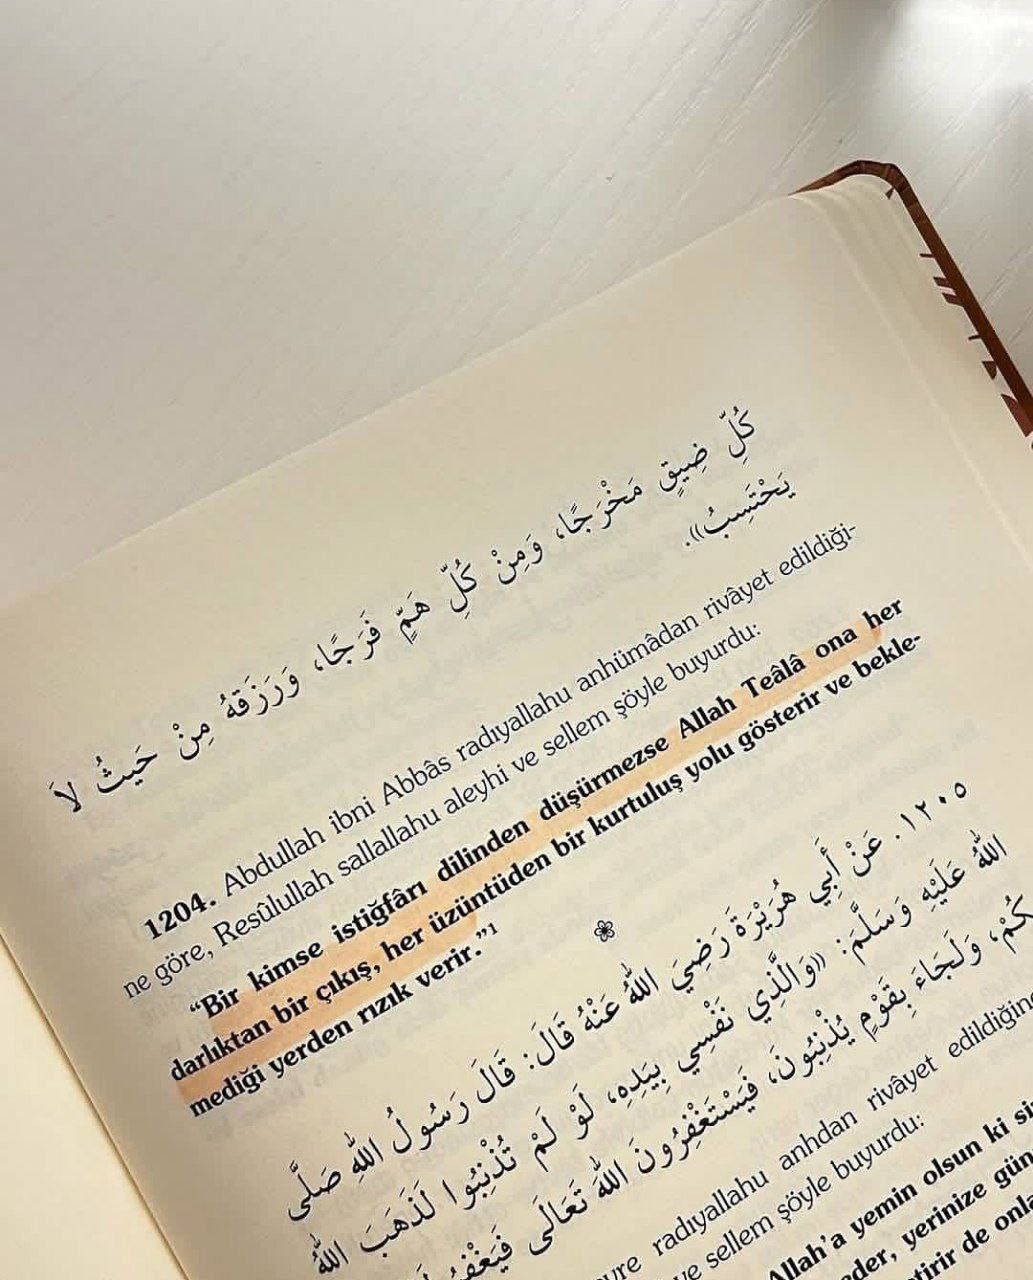 كُلِّ ضِيقٍ مَخْرَجًا، وَمِنْ كُلِّ هَمٍّ فَرَجًا، وَرَزَقَهُ مِنْ حَيْثُ لاَ
يَحْتَسِبُ».
1204. Abdullah ibni Abbâs radıyallahu anhümâdan rivâyet edildiği-
ne göre, Resûlullah sallallahu aleyhi ve sellem şöyle buyurdu:
“Bir kimse istiğfârı dilinden düşürmezse Allah Teâlâ ona her
darlıktan bir çıkış, her üzüntüden bir kurtuluş yolu gösterir ve bekle-
mediği yerden rızık verir.”1
١٢٠٥. عَنْ أَبِي هُرَيْرَةَ رَضِيَ اللهُ عَنْهُ قَالَ: قَالَ رَسُولُ اللهِ صَلَّى
اللهُ عَلَيْهِ وَسَلَّمَ: «وَالَّذِي نَفْسِي بِيَدِهِ، لَوْ لَمْ تُذْنِبُوا لَذَهَبَ اللهُ
كُمْ، وَلَجَاءَ بِقَوْمٍ يُذْنِبُونَ، فَيَسْتَغْفِرُونَ اللهَ تَعَالَى
radıyallahu anhdan rivâyet
ve sellem şöyle buyurdu:
Allah’a yemin olsun ki
yerinize
de